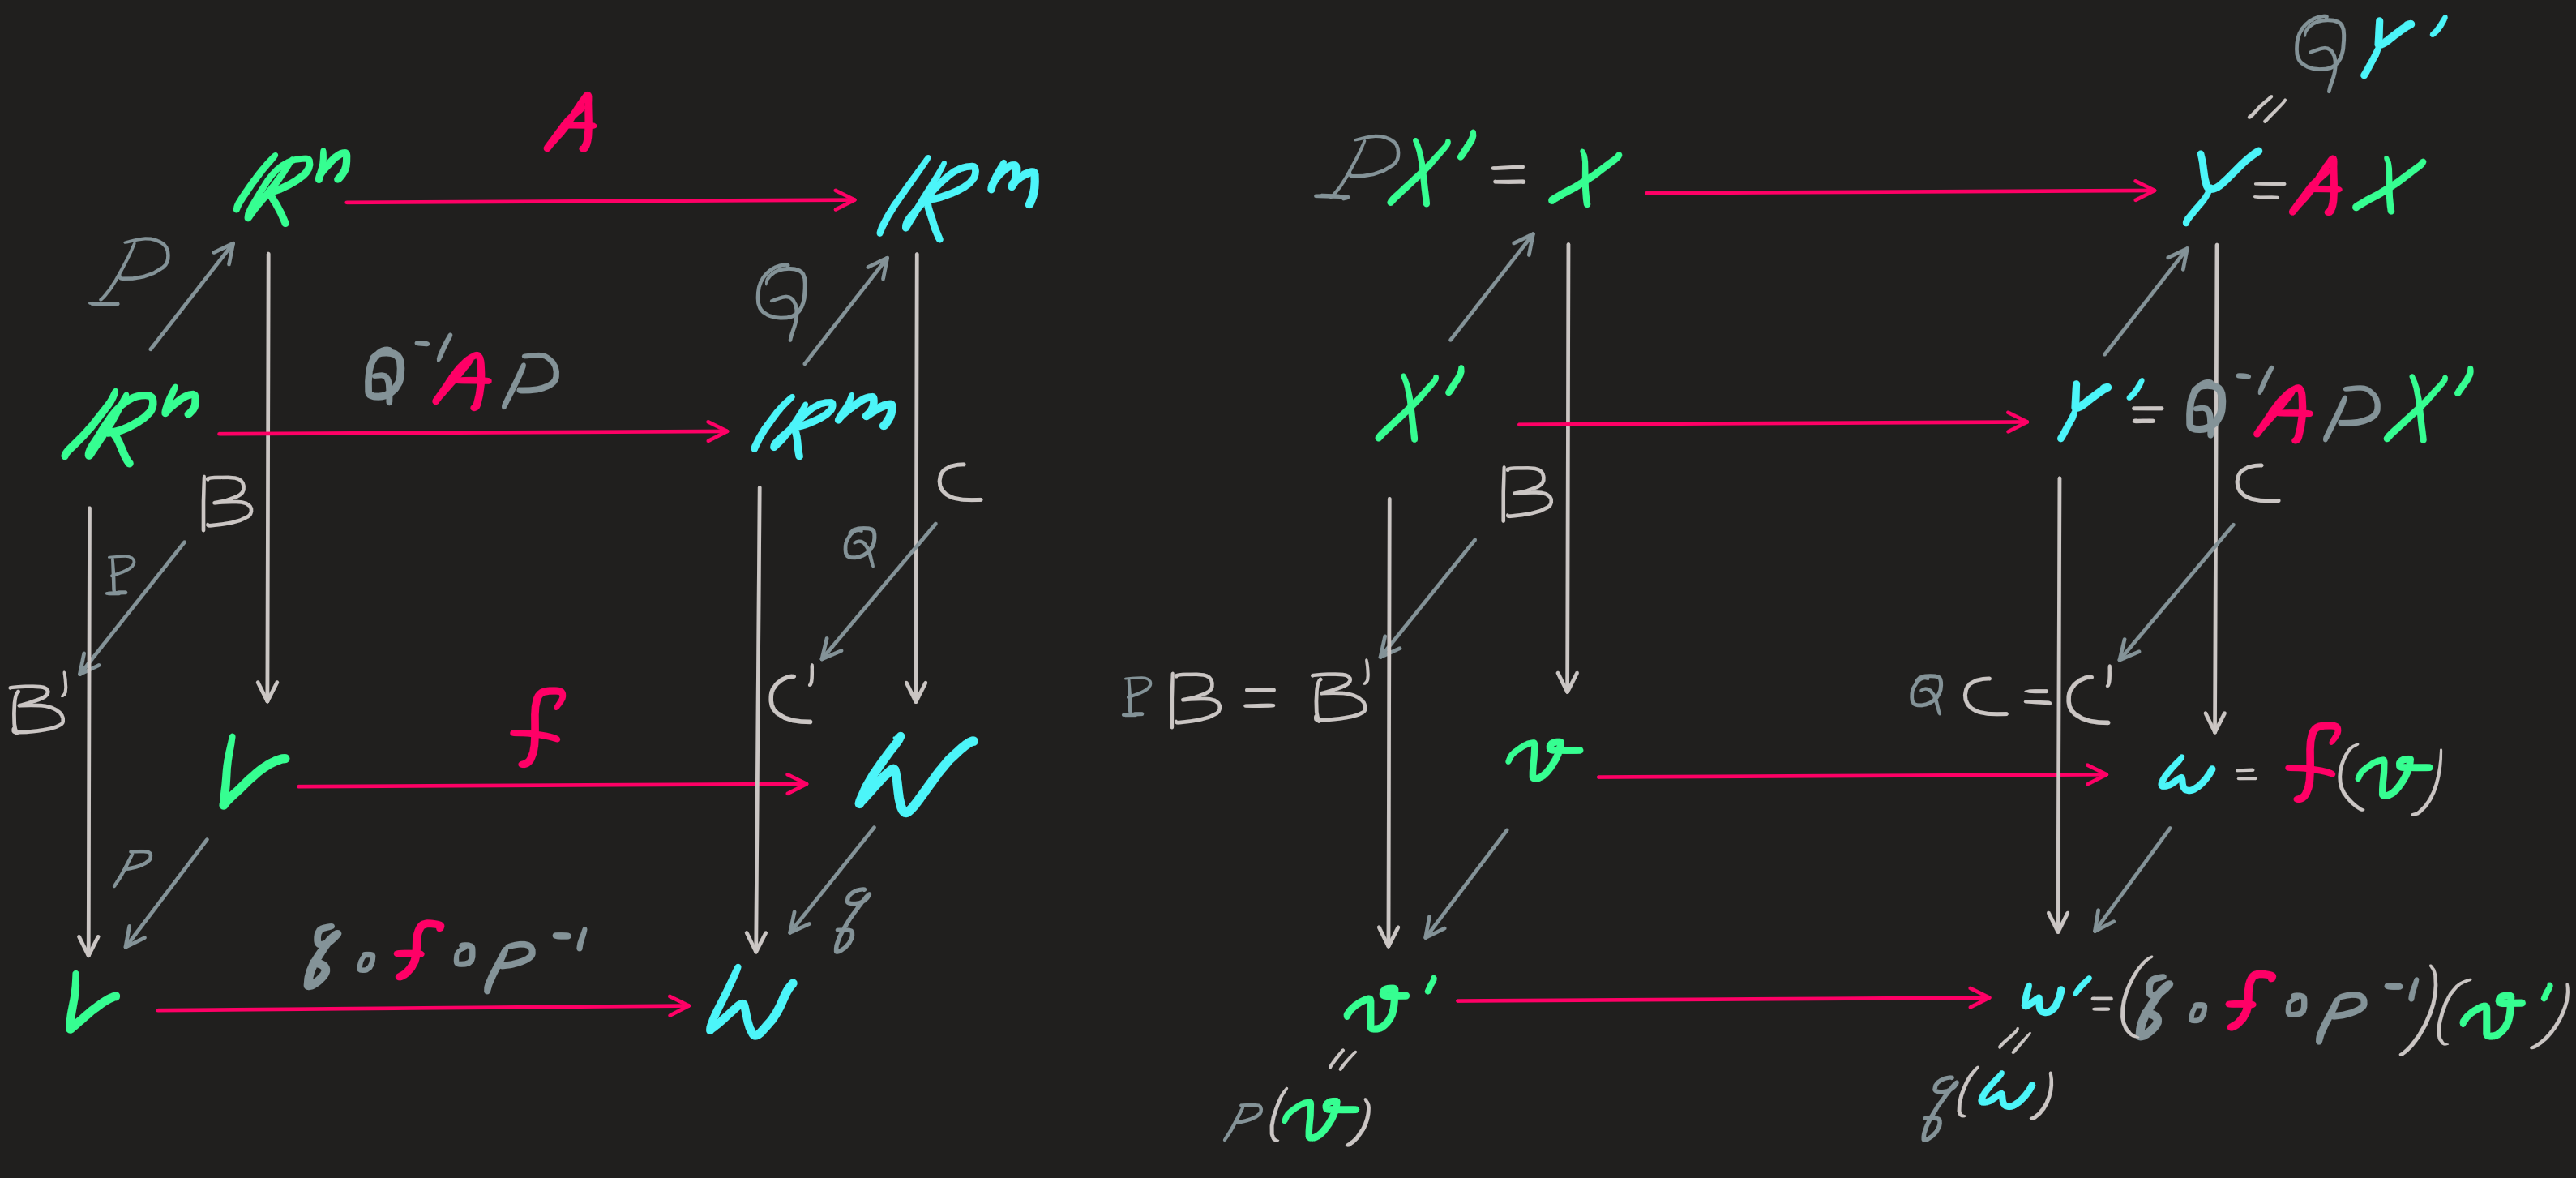 A
ℝⁿ ℝᵐ
P Q
Q⁻¹AP
ℝⁿ ℝᵐ
B C
P Q
B' C'
f
V W
p q
q∘f∘p⁻¹
V W
QY'
=
PX' = X Y = AX
X' Y' = Q⁻¹APX'
B C
PB = B' QC = C'
v w = f(v)
v' w' = (q∘f∘p⁻¹)(v')
= =
p(v) q(w)